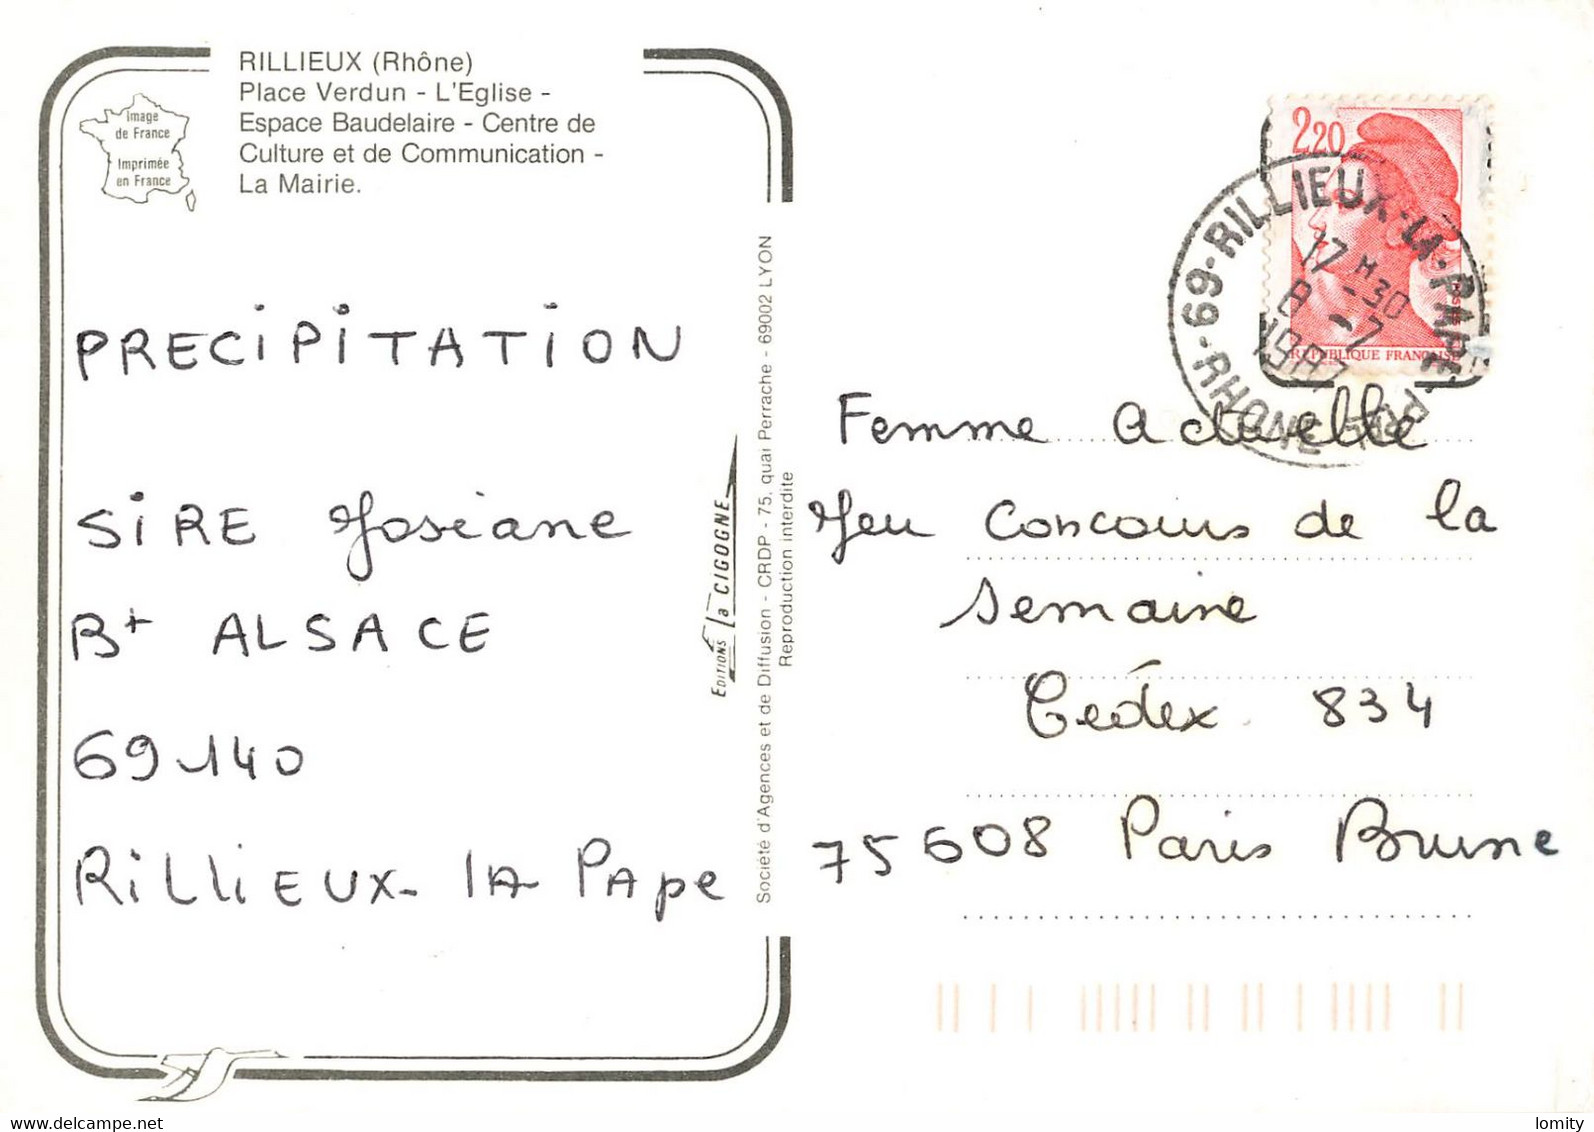 RILLIEUX (Rhône)
Place Verdun - L'Eglise -
Espace Baudelaire - Centre de
Culture et de Communication -
La Mairie.
Image
de France
Imprimée
en France
PRECIPITATION
SIRE Josiane
Bt ALSACE
69140
RILLIEUX-LA PApe
EDITIONS la CIGOGNE
Société d'Agences et de Diffusion - CRDP - 75, quai Perrache - 69002 LYON
Reproduction interdite
2,20
REPUBLIQUE FRANÇAISE
69-RILLIEUX-LA-PAPE
17 H 30
8 -7
1987
RHONE
Femme Actuelle
Jeu Concours de la
Semaine
Cedex 834
75608 Paris Brune
lomity